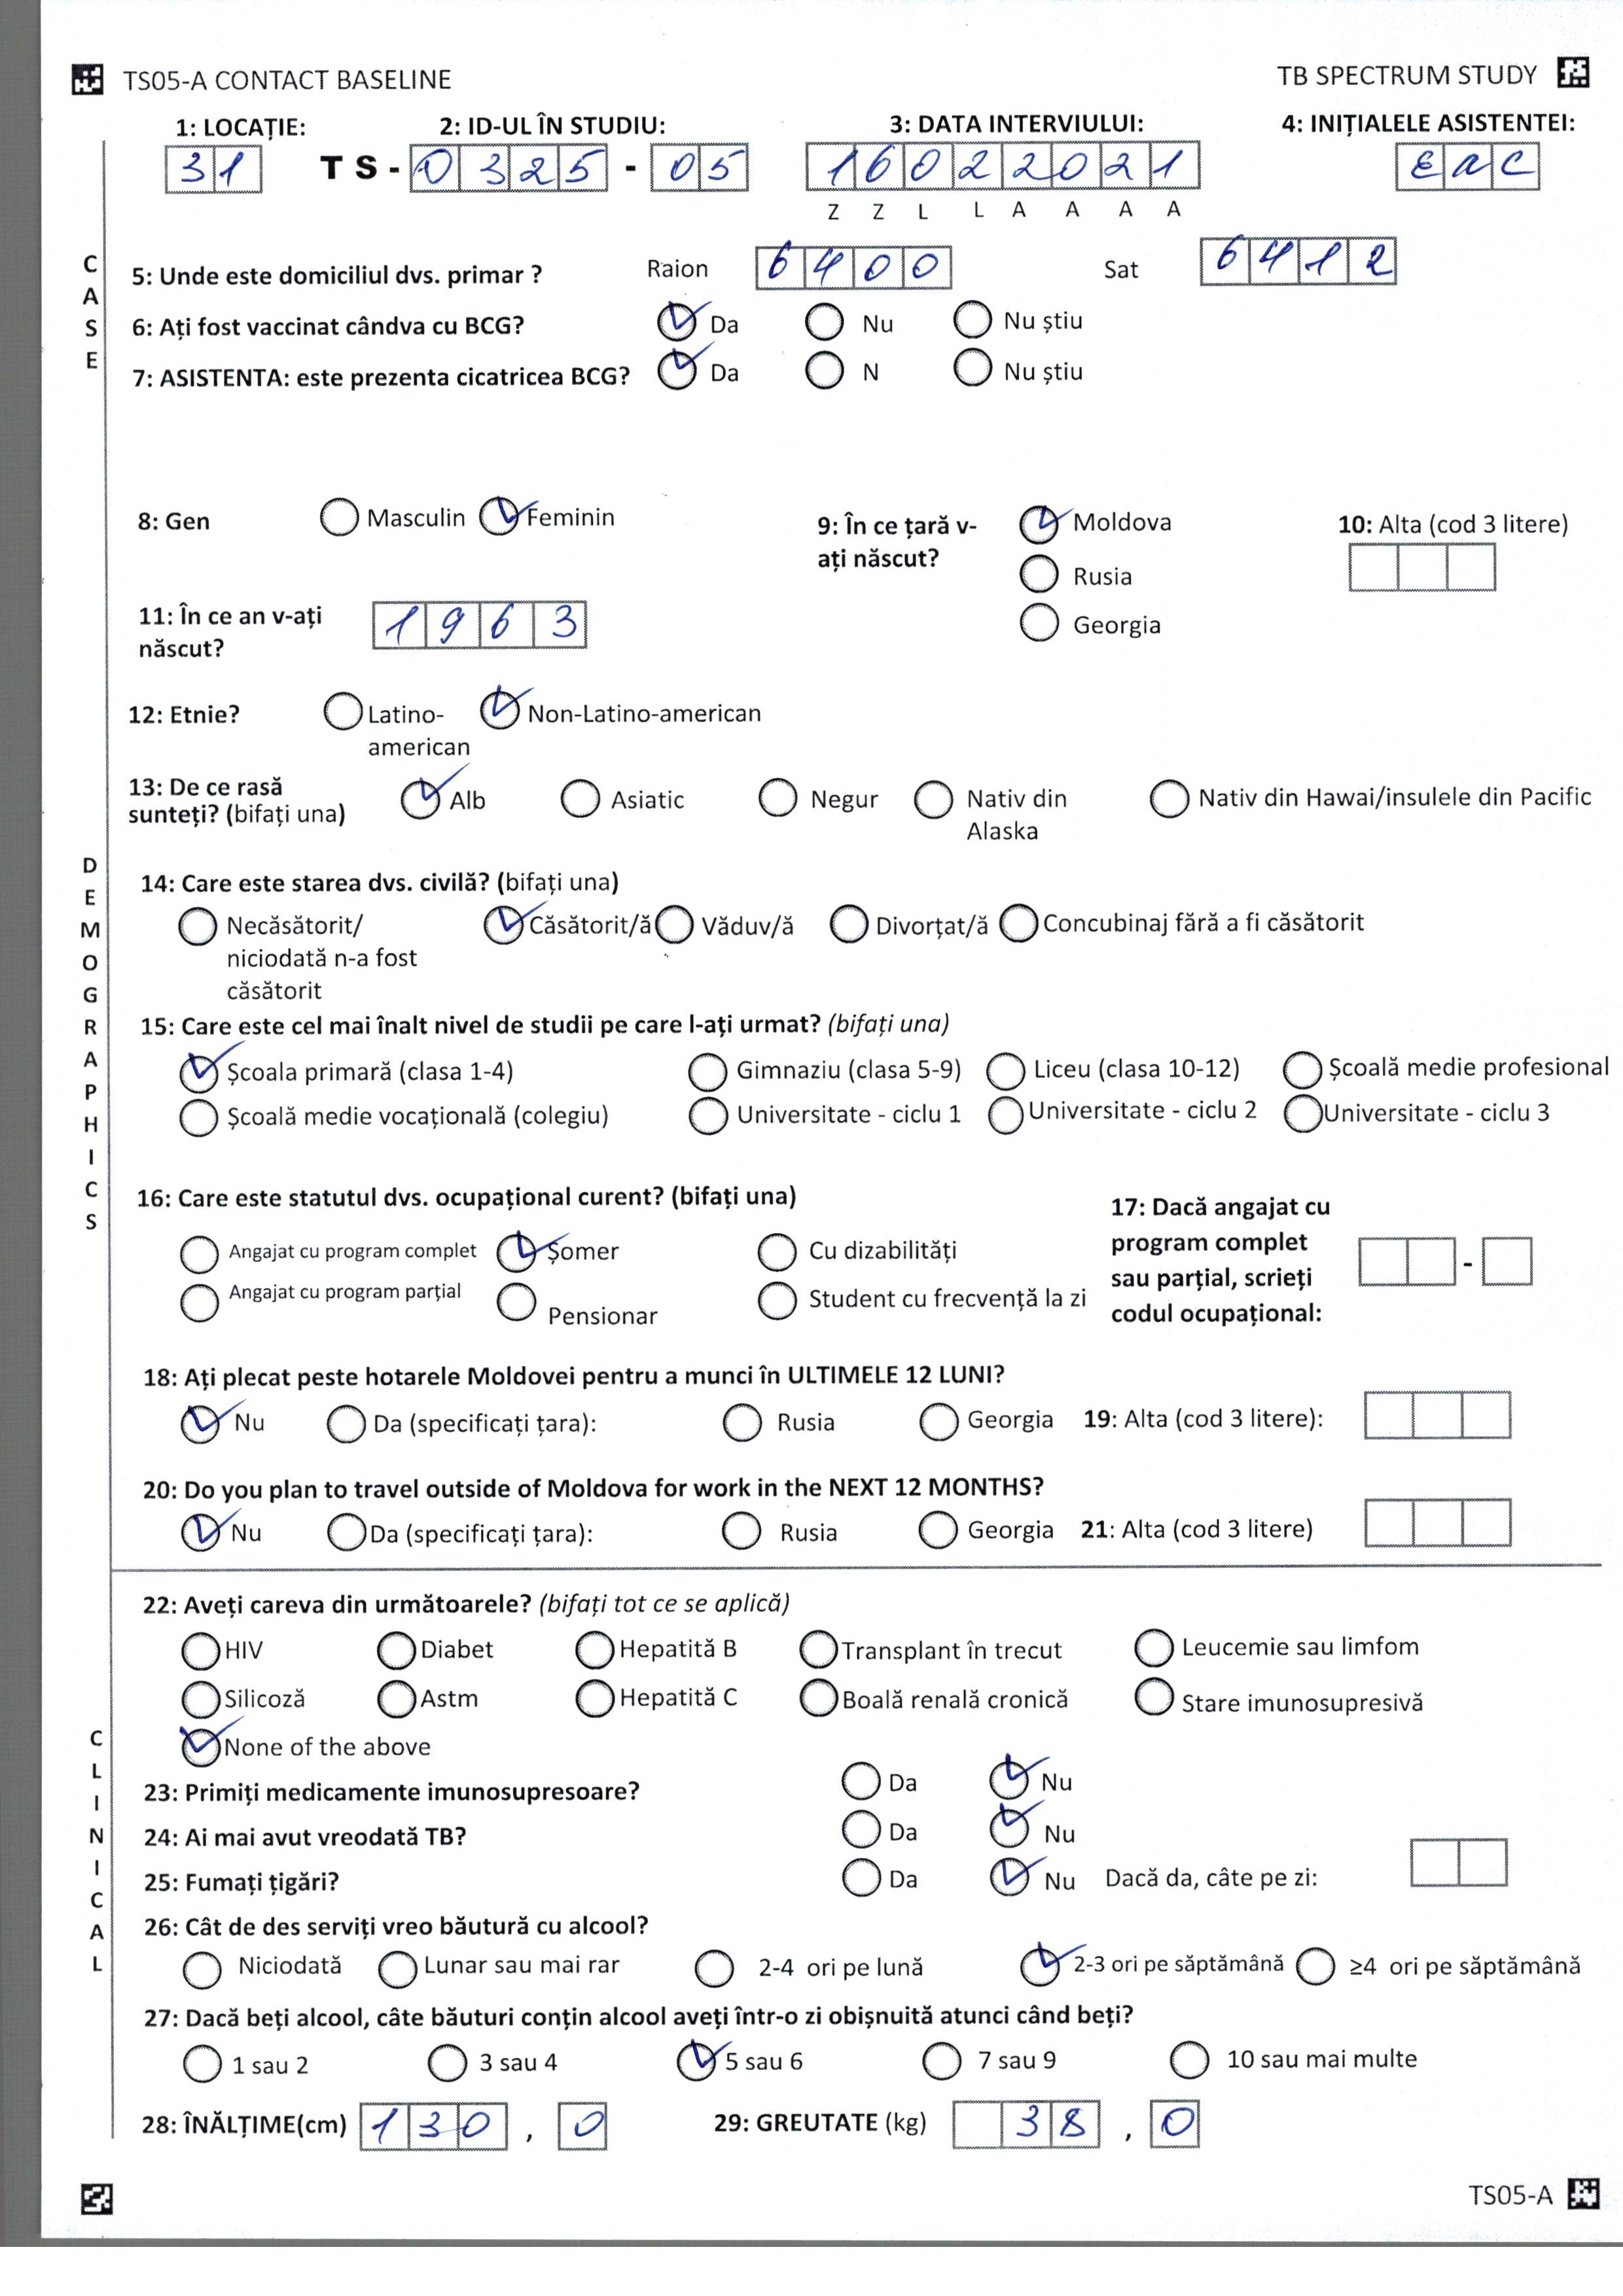 TS05-A CONTACT BASELINE TB SPECTRUM STUDY
1: LOCAȚIE: 2: ID-UL ÎN STUDIU: 3: DATA INTERVIULUI: 4: INIȚIALELE ASISTENTEI:
31 TS-0325-05 16022021 EAC
Z Z L L A A A A
CASE
5: Unde este domiciliul dvs. primar ? Raion 6400 Sat 6412
6: Ați fost vaccinat cândva cu BCG? Da Nu Nu știu
7: ASISTENTA: este prezenta cicatricea BCG? Da N Nu știu
8: Gen Masculin Feminin 9: În ce țară v- Moldova 10: Alta (cod 3 litere)
ați născut? Rusia
11: În ce an v-ați 1963 Georgia
născut?
12: Etnie? Latino- Non-Latino-american
american
13: De ce rasă
sunteți? (bifați una) Alb Asiatic Negur Nativ din Nativ din Hawai/insulele din Pacific
Alaska
DEMOGRAPHICS
14: Care este starea dvs. civilă? (bifați una)
Necăsătorit/ Căsătorit/ă Văduv/ă Divorțat/ă Concubinaj fără a fi căsătorit
niciodată n-a fost
căsătorit
15: Care este cel mai înalt nivel de studii pe care l-ați urmat? (bifați una)
Școala primară (clasa 1-4) Gimnaziu (clasa 5-9) Liceu (clasa 10-12) Școală medie profesional
Școală medie vocațională (colegiu) Universitate - ciclu 1 Universitate - ciclu 2 Universitate - ciclu 3
16: Care este statutul dvs. ocupațional curent? (bifați una) 17: Dacă angajat cu
Angajat cu program complet Șomer Cu dizabilități program complet
Angajat cu program parțial Pensionar Student cu frecvență la zi sau parțial, scrieți -
codul ocupațional:
18: Ați plecat peste hotarele Moldovei pentru a munci în ULTIMELE 12 LUNI?
Nu Da (specificați țara): Rusia Georgia 19: Alta (cod 3 litere):
20: Do you plan to travel outside of Moldova for work in the NEXT 12 MONTHS?
Nu Da (specificați țara): Rusia Georgia 21: Alta (cod 3 litere)
22: Aveți careva din următoarele? (bifați tot ce se aplică)
HIV Diabet Hepatită B Transplant în trecut Leucemie sau limfom
Silicoză Astm Hepatită C Boală renală cronică Stare imunosupresivă
None of the above
CLINICAL
23: Primiți medicamente imunosupresoare? Da Nu
24: Ai mai avut vreodată TB? Da Nu
25: Fumați țigări? Da Nu Dacă da, câte pe zi:
26: Cât de des serviți vreo băutură cu alcool?
Niciodată Lunar sau mai rar 2-4 ori pe lună 2-3 ori pe săptămână ≥4 ori pe săptămână
27: Dacă beți alcool, câte băuturi conțin alcool aveți într-o zi obișnuită atunci când beți?
1 sau 2 3 sau 4 5 sau 6 7 sau 9 10 sau mai multe
28: ÎNĂLȚIME(cm) 130 , 0 29: GREUTATE (kg) 38 , 0
TS05-A